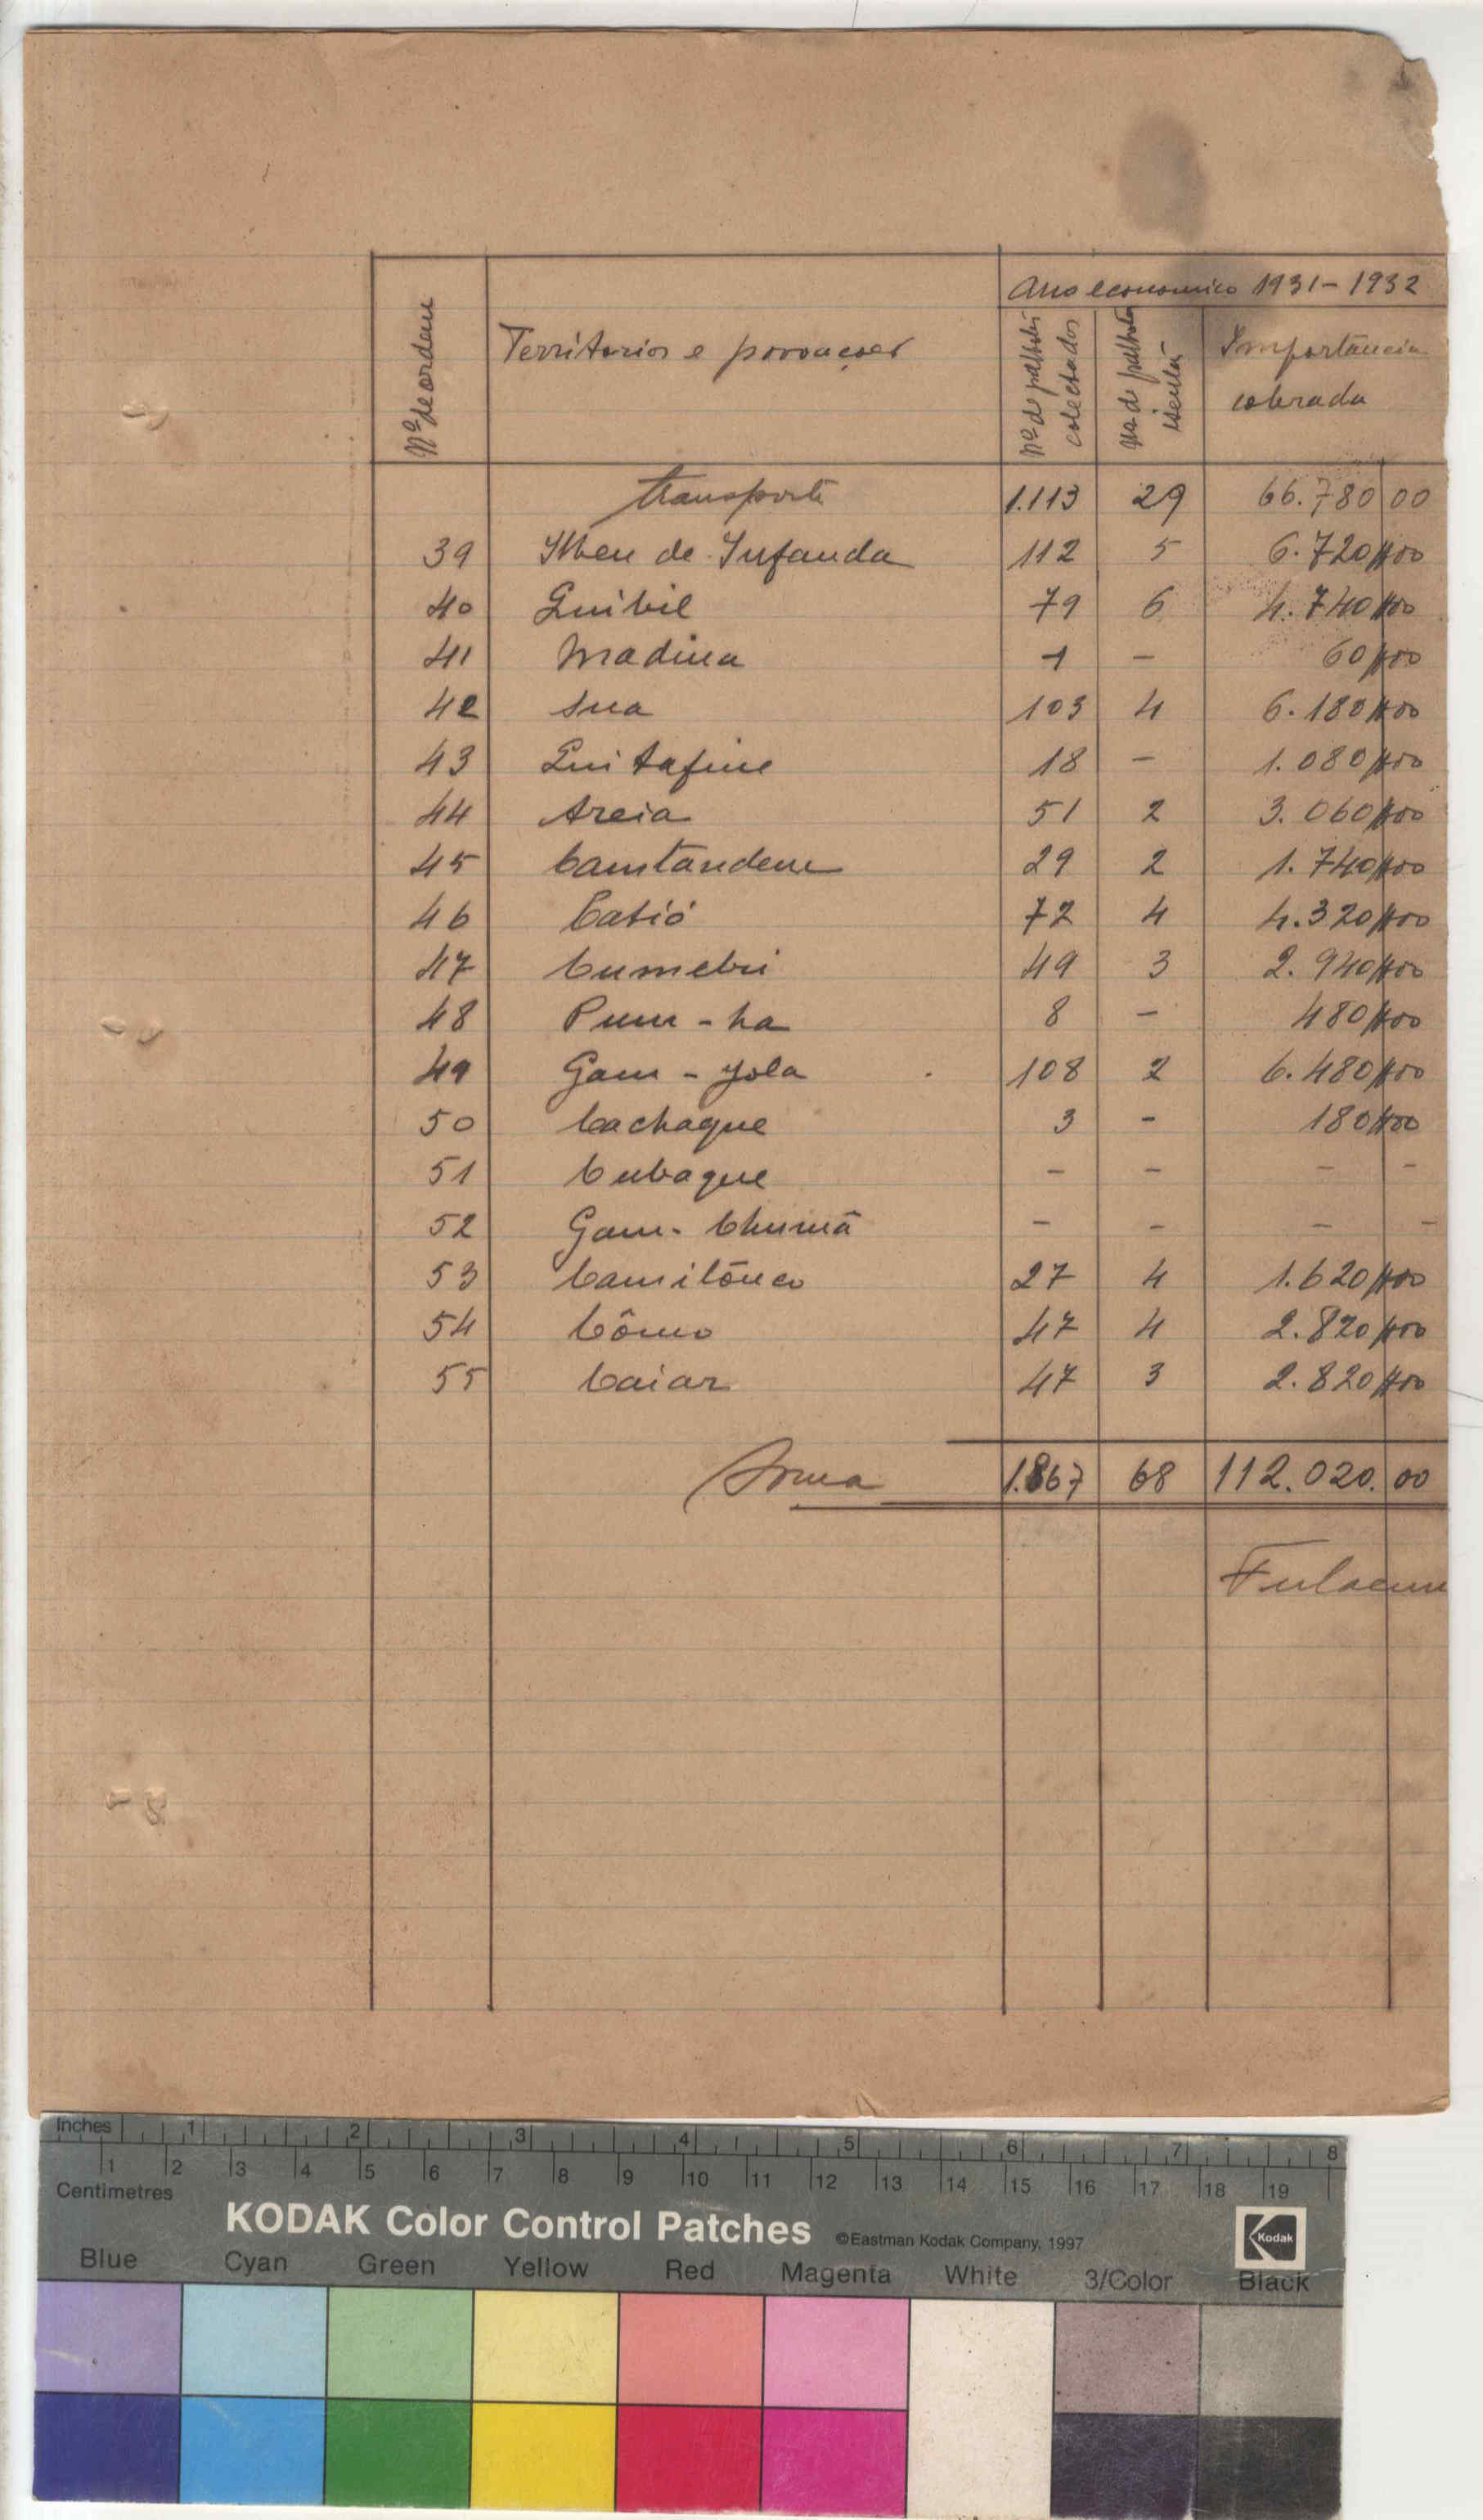 Ano economico 1931-1932
Nº de ordem Territorios e povoações Nº de palhotas colectados Nº de palhotas isentas Importância cobrada
Transporte 1.113 29 66.780 00
39 Ilheu de Infanda 112 5 6.720$00
40 Quibil 79 6 4.740$00
41 Madina 1 - 60$00
42 Sua 103 4 6.180$00
43 Quitafine 18 - 1.080$00
44 Areia 51 2 3.060$00
45 Camtandem 29 2 1.740$00
46 Catió 72 4 4.320$00
47 Cumebu 49 3 2.940$00
48 Pum-ha 8 - 480$00
49 Gam-Yola 108 2 6.480$00
50 Cachaque 3 - 180$00
51 Cubaque - - - -
52 Gam-Chumã - - - -
53 Camilônco 27 4 1.620$00
54 Cômo 47 4 2.820$00
55 Caiar 47 3 2.820$00
Soma 1.867 68 112.020.00
Fulacun
Inches 1 2 3 4 5 6 7 8
1 2 3 4 5 6 7 8 9 10 11 12 13 14 15 16 17 18 19
Centimetres
KODAK Color Control Patches ©Eastman Kodak Company, 1997 Kodak
Blue Cyan Green Yellow Red Magenta White 3/Color Black